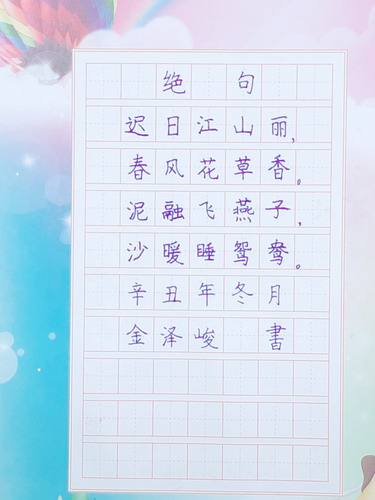 绝句
迟日江山丽，
春风花草香。
泥融飞燕子，
沙暖睡鸳鸯。
辛丑年冬月
金泽峻 書